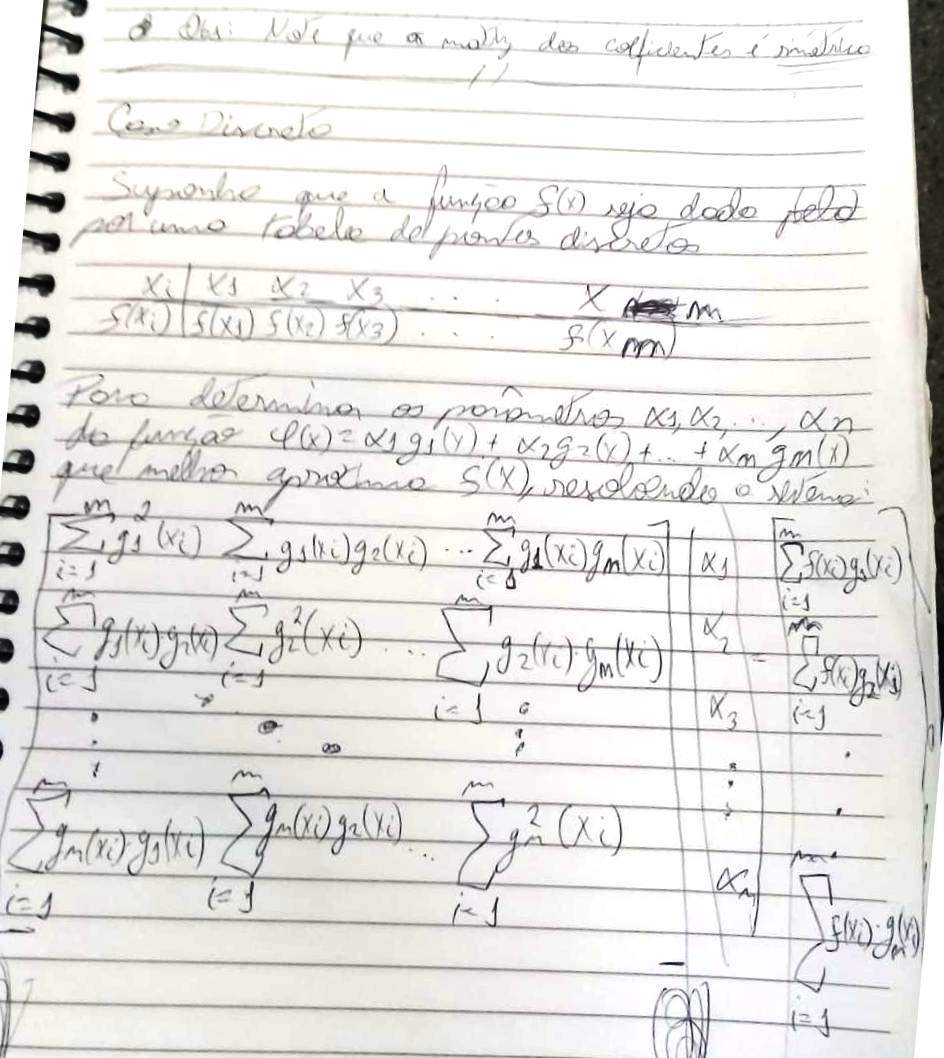 Obs: Note que a matriz dos coeficientes é simétrica
Caso Discreto
Suponha que a função f(x) seja dada pela
por uma tabela de pontos discretos
xi | x1 x2 x3 . . . x m
f(xi) | f(x1) f(x2) f(x3) . . . f(xm)
Para determinar os parâmetros α1, α2, ..., αn
da função φ(x) = α1 g1(x) + α2 g2(x) + ... + αn gn(x)
que melhor aproxima f(x), resolvendo o sistema:
[ ∑_{i=1}^{m} g1²(xi) ∑_{i=1}^{m} g1(xi) g2(xi) ... ∑_{i=1}^{m} g1(xi) gn(xi) ] | α1 | [ ∑_{i=1}^{m} f(xi) g1(xi) ]
∑_{i=1}^{m} g1(xi)·g2(xi) ∑_{i=1}^{m} g2²(xi) ... ∑_{i=1}^{m} g2(xi)·gn(xi) | α2 | = ∑_{i=1}^{m} f(xi) g2(xi)
. . . . α3 .
: : : .
∑_{i=1}^{m} gn(xi)·g1(xi) ∑_{i=1}^{m} gn(xi) g2(xi) ... ∑_{i=1}^{m} gn²(xi) | αn | ∑_{i=1}^{m} f(xi)·gn(xi)